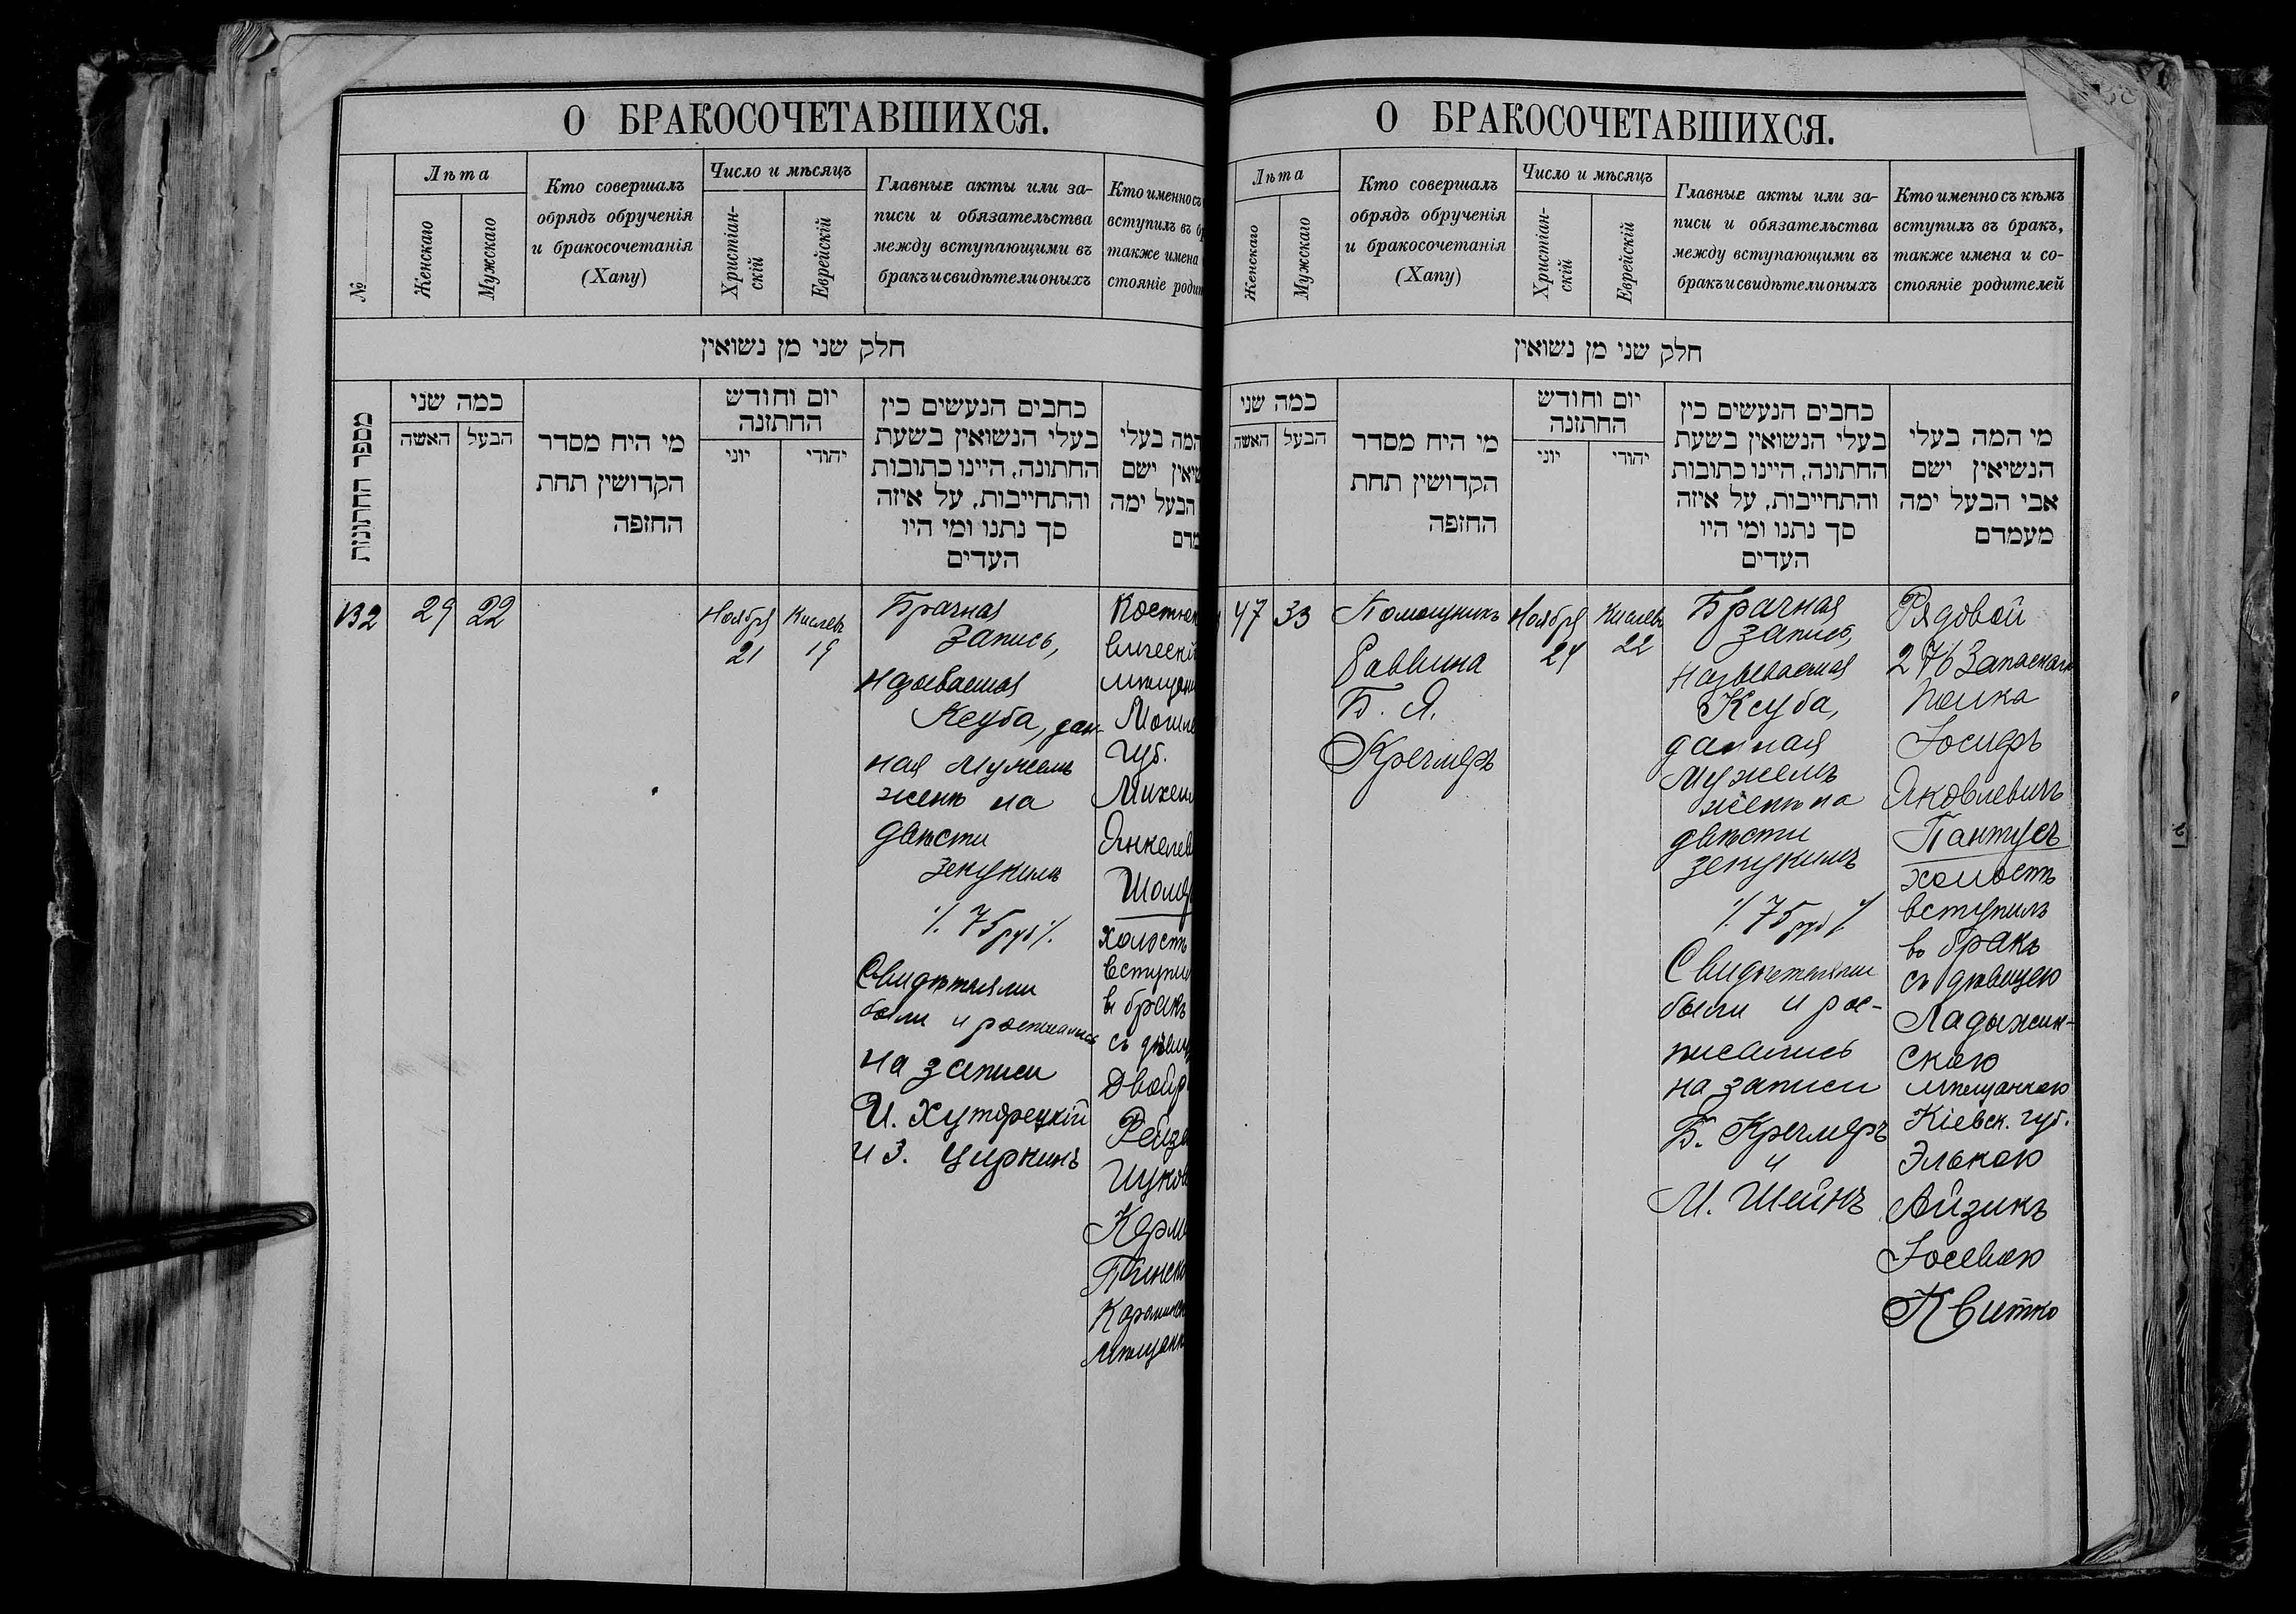 О БРАКОСОЧЕТАВШИХСЯ.
№
Лѣта
Женскаго
Мужскаго
Кто совершалъ
обрядъ обрученія
и бракосочетанія
(Хапу)
Число и мѣсяцъ
Христіан-
скій
Еврейскій
Главные акты или за-
писи и обязательства
между вступающими въ
бракъ и свидѣтели оныхъ
Кто именно съ
вступилъ въ б
также имена
стояніе роди
חלק שני מן נשואין
מספר החתונות
כמה שני
האשה
הבעל
מי היח מסדר
הקדושין תחת
החזפה
יום וחודש
החתזנה
יוני
יהודי
כחבים הנעשים כין
בעלי הנשואין בשעת
החתונה, היינו כתובות
והתחייבות, על איזה
סך נתנו ומי היו
העדים
המה בעלי
שיאין ישם
הבעל ימה
מדם
132
29
22
Ноября
21
Кислев
19
Брачная
запись,
называемая
Ксуба, дан-
ная мужемъ
женѣ на
двѣсти
зекукимъ
٪ 75 руб ٪
Свидѣтелями
были и росписались
на записи
И. Хуторецкій
и З. Циркинъ
Костюк
вическій
мѣщан
Могил
губ.
Михел
Янкелев
Шомер
холостъ
вступил
въ бракъ
съ дѣвиц
Двойр
Рейза
Ицков
Керм
Пинско
Каролинск
мѣщанк
О БРАКОСОЧЕТАВШИХСЯ.
Лѣта
Женскаго
Мужскаго
Кто совершалъ
обрядъ обрученія
и бракосочетанія
(Хапу)
Число и мѣсяцъ
Христіан-
скій
Еврейскій
Главные акты или за-
писи и обязательства
между вступающими въ
бракъ и свидѣтели оныхъ
Кто именно съ кѣмъ
вступилъ въ бракъ,
также имена и со-
стояніе родителей
חלק שני מן נשואין
כמה שני
האשה
הבעל
מי היח מסדר
הקדושין תחת
החזפה
יום וחודש
החתזנה
יוני
יהודי
כחבים הנעשים כין
בעלי הנשואין בשעת
החתונה, היינו כתובות
והתחייבות, על איזה
סך נתנו ומי היו
העדים
מי המה בעלי
הנשיאין ישם
אבי הבעל ימה
מעמדם
47
33
Помощникъ
Раввина
Б. Я.
Кречмеръ
Ноября
24
Кислевъ
22
Брачная
запись,
называемая
Ксуба,
данная
мужемъ
женѣ на
двѣсти
зекукимъ
٪ 75 руб ٪
Свидѣтелями
были и рос-
писались
на записи
Б. Кречмеръ
и
М. Шейнъ
Рядовой
276 Запаснаго
полка
Іосифъ
Яковлевичъ
Пантусъ
холостъ
вступилъ
въ бракъ
съ дѣвицею
Ладыжин-
скою
мѣщанкою
Кіевск. губ.
Элькою
Айзикъ
Іосевою
Квитко